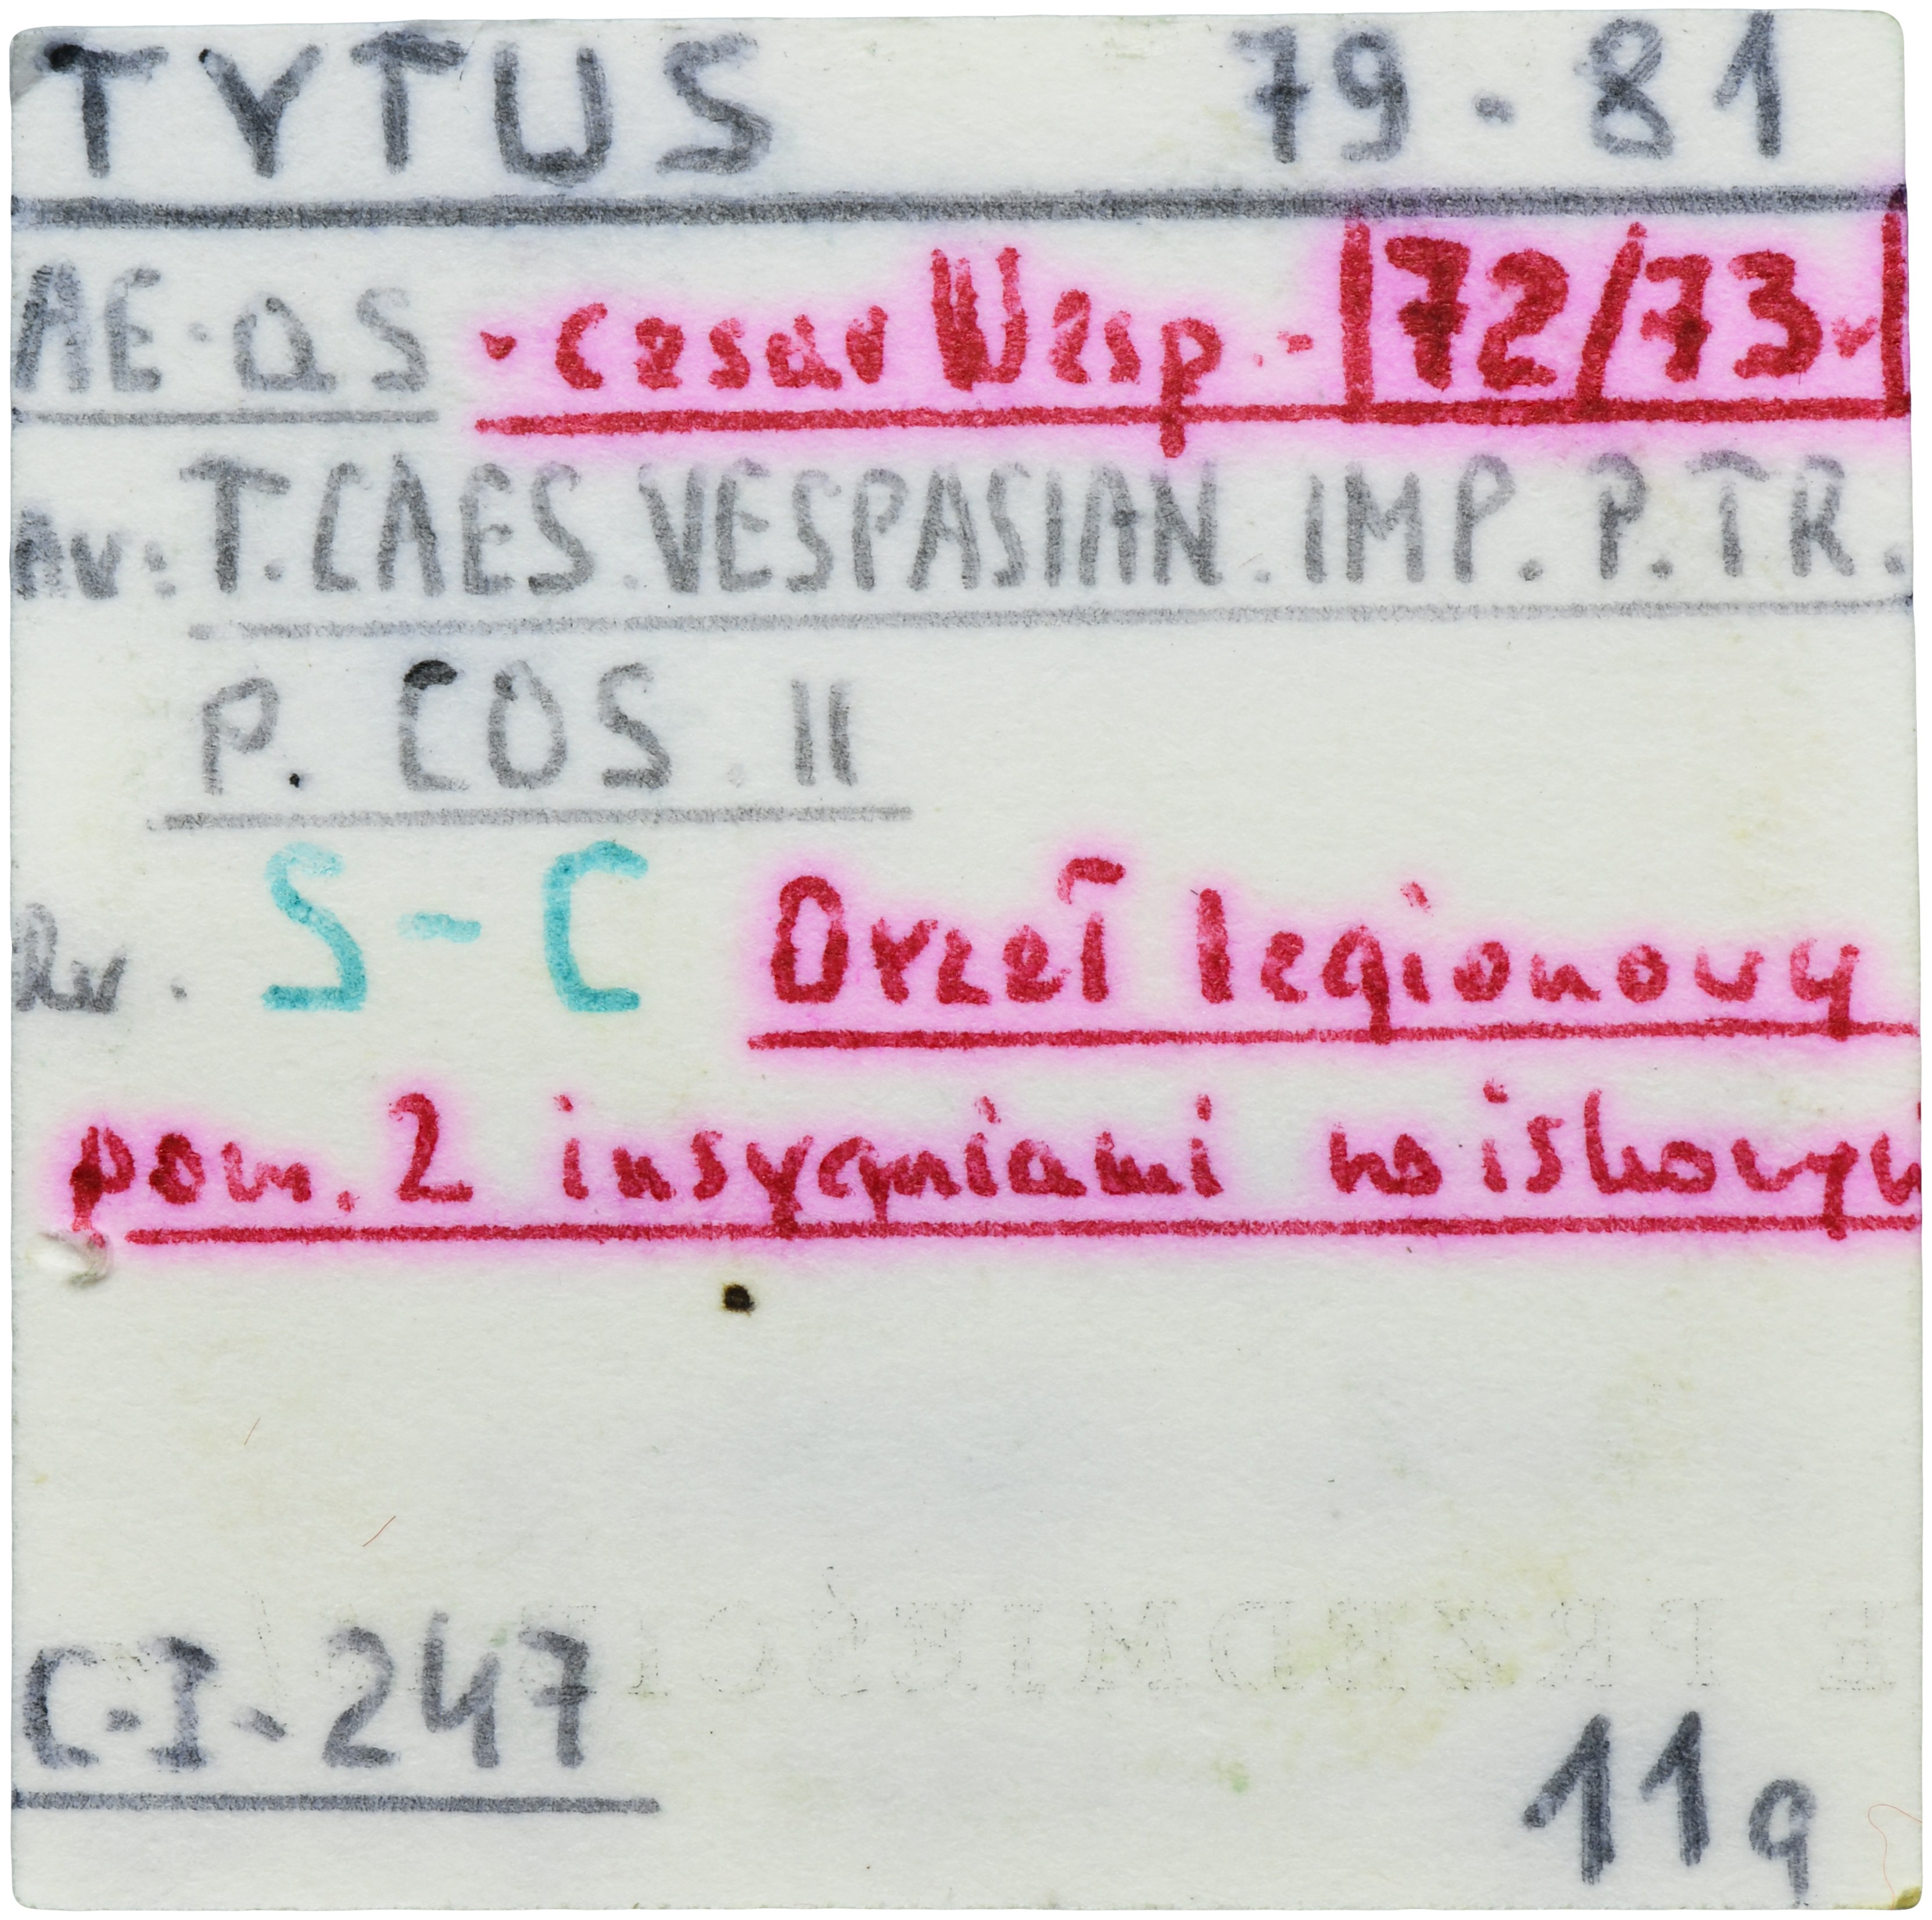 TYTUS 79-81
AE·QS - cesar Wesp. - |72/73-|
Av: T.CAES.VESPASIAN.IMP.P.TR.
P. COS II
Rv. S-C Orzeł legionowy
pom. 2 insygniami woiskowym
C-I-247
11g